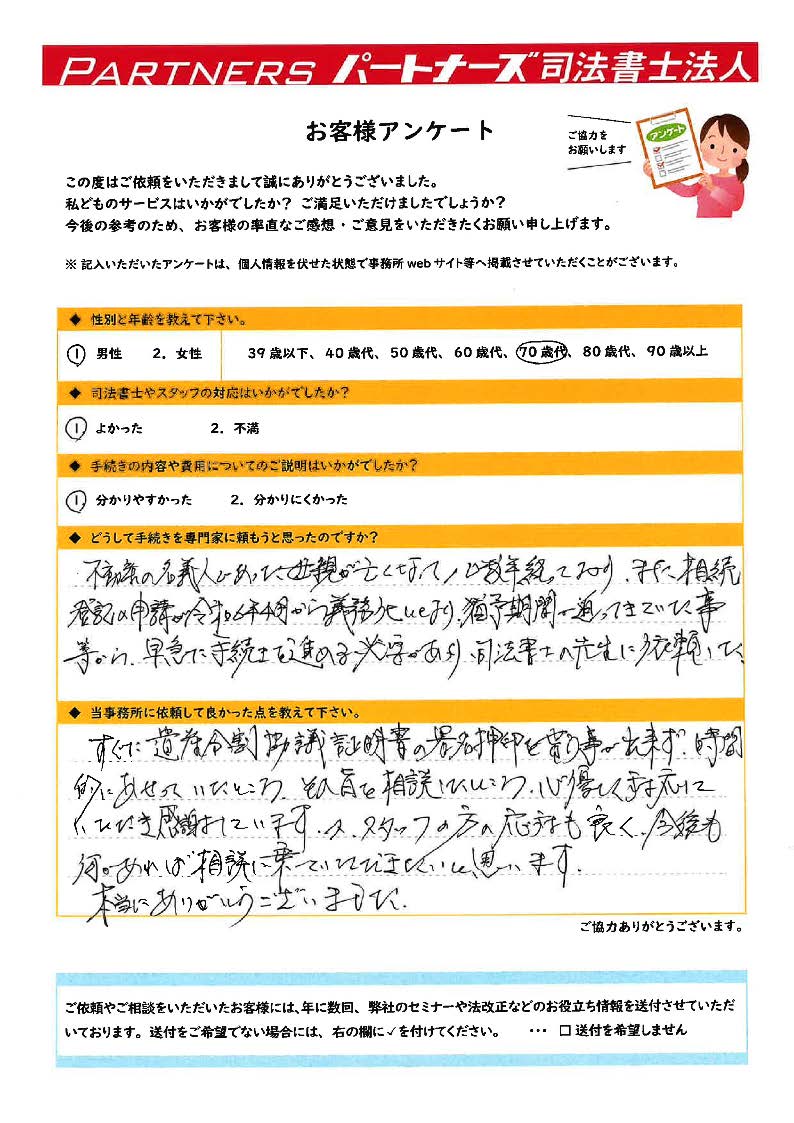 PARTNERS パートナーズ司法書士法人
お客様アンケート
ご協力を
お願いします
アンケート
この度はご依頼をいただきまして誠にありがとうございました。
私どものサービスはいかがでしたか? ご満足いただけましたでしょうか?
今後の参考のため、お客様の率直なご感想・ご意見をいただきたくお願い申し上げます。
※ 記入いただいたアンケートは、個人情報を伏せた状態で事務所 web サイト等へ掲載させていただくことがございます。
◆ 性別と年齢を教えて下さい。
1 男性 2. 女性 39 歳以下、40 歳代、50 歳代、60 歳代、70 歳代、80 歳代、90 歳以上
◆ 司法書士やスタッフの対応はいかがでしたか?
1 よかった 2. 不満
◆ 手続きの内容や費用についてのご説明はいかがでしたか?
1 分かりやすかった 2. 分かりにくかった
◆ どうして手続きを専門家に頼もうと思ったのですか?
不動産の名義人であった母親が亡くなって数年経っており、また相続
登記の申請が令和6年4月から義務化となり、猶予期間が迫ってきていた事
等から、早急に手続きを進める必要があり、司法書士の先生に依頼した
◆ 当事務所に依頼して良かった点を教えて下さい。
すぐに遺産分割協議証明書の署名押印を貰う事が出来ず、時間
的にあせっていたところ、その旨を相談したところ、心優しく対応して
いただき感謝しています。又、スタッフの方の応対も良く、今後も
何かあれば相談に乗っていただきたいと思います。
本当にありがとうございました。
ご協力ありがとうございます。
ご依頼やご相談をいただいたお客様には、年に数回、弊社のセミナーや法改正などのお役立ち情報を送付させていただ
いております。送付をご希望でない場合には、右の欄に✓を付けてください。 ・・・ □ 送付を希望しません